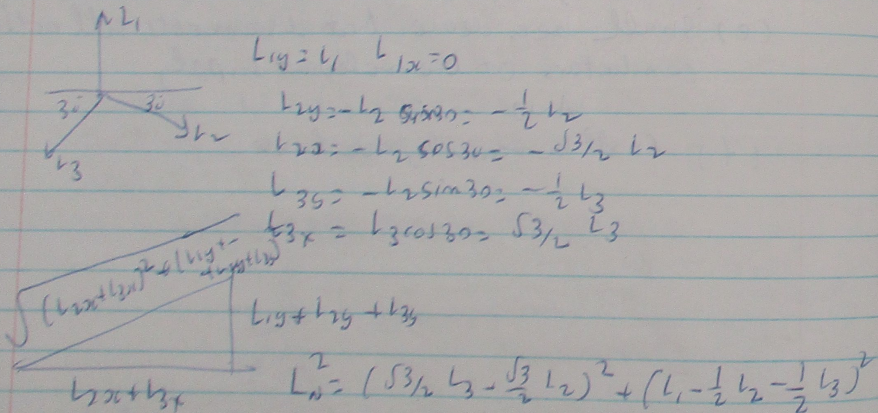 L₁
L₁y = L₁ L₁x = 0
30 30
L₂y = -L₂ sin30 = -1/2 L₂
L₂
L₂x = -L₂ cos30 = -√3/2 L₂
L₃
L₃y = -L₂ sin30 = -1/2 L₃
L₃x = L₃ cos30 = √3/2 L₃
√(L₂x+L₃x)² + (L₁y+
+L₂y+L₃y)
L₁y + L₂y + L₃y
L₂x + L₃x
L² = (√3/2 L₃ - √3/2 L₂)² + (L₁ - 1/2 L₂ - 1/2 L₃)²